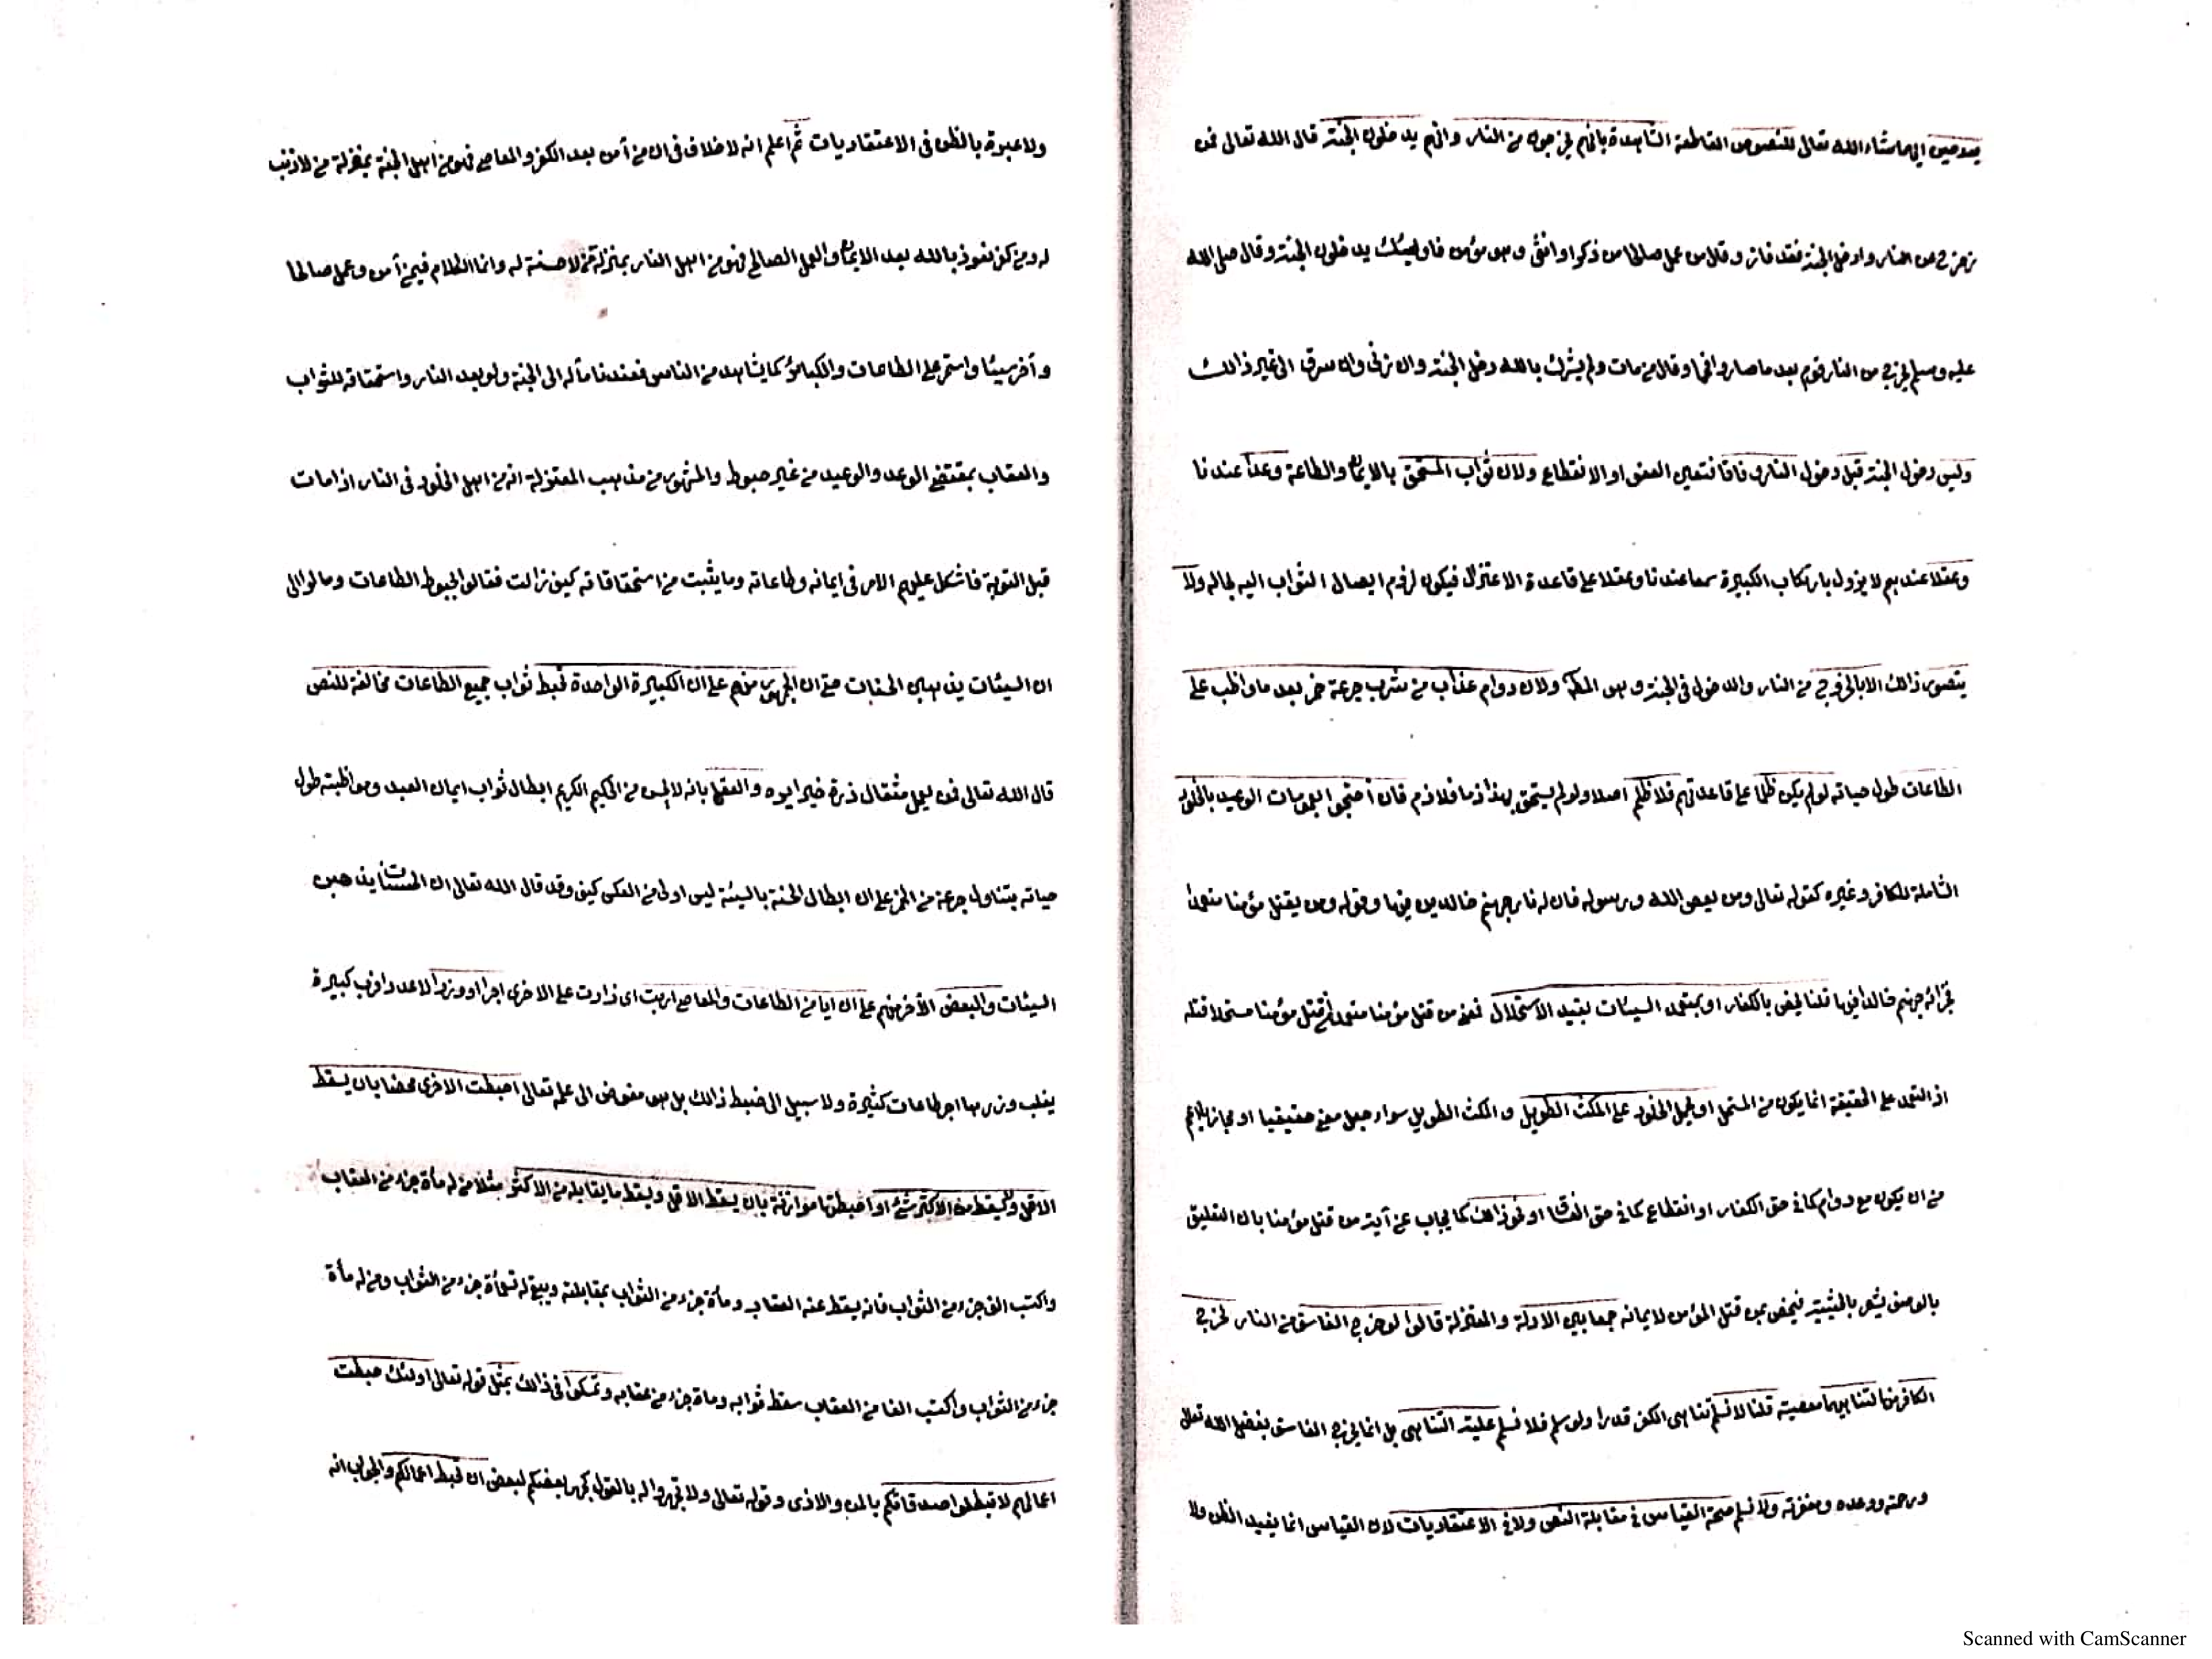 يعدحين ان ماشاء الله تعالى للنصوص القاطعة الشاهدة بانهم يخرجون من النار وانهم يدخلون الجنة قال الله تعالى فمن
زحزح عن النار وادخل الجنة فقد فاز وقال من عمل صالحا من ذكر او انثى وهو مؤمن فاولئك يدخلون الجنة وقال صلى الله
عليه وسلم يخرج من النار قوم بعد ما صاروا فحما وقال من مات ولم يشرك بالله دخل الجنة وان زنى وان سرق الى غير ذالك
وليس دخول الجنة قبل دخول النار وفاقا فتعين العفو او الانقطاع ولان ثواب المستحق بالايمان والطاعة وعدا عندنا
وعقلا عندهم لا يزول بارتكاب الكبيرة سمعا عندنا وعقلا على قاعدة الاعتزال فيكون لزوم ايصال الثواب اليه بحاله ولا
يتصور ذالك الا بالخروج من النار والدخول في الجنة وهو المط ولان دوام عذاب من شرب جرعة خمر بعد ما واظب على
الطاعات طول حياته لو لم يكن ظلما على قاعدتهم فلا ظلم اصلا ولو لم يستحق بهذا ذما فلا ذم فان احتجوا بعمومات الوعيد بالخلود
الشاملة للكافر وغيره كقوله تعالى ومن يعص الله ورسوله فان له نار جهنم خالدين فيها وقوله ومن يقتل مؤمنا متعمدا
فجزائه جهنم خالدا فيها قلنا يخص بالكفار او بتعمد السيئات بقيد الاستحلال فمعنى من قتل مؤمنا متعمدا من قتل مؤمنا مستحلا قتله
اذ التعمد على الحقيقة انما يكون من المستحل او يحمل الخلود على المكث الطويل والمكث الطويل سواء جعل معنى حقيقيا او مجازيا اعم
من ان يكون مع دوام كما في حق الكفار او انقطاع كما في حق الفساق او نحو ذالك كما يجاب عن آية من قتل مؤمنا بان التعليق
بالوصف يشعر بالحيثية فيختص بمن قتل المؤمن لايمانه جمعا بين الادلة والمعتزلة قالوا لو خرج الفاسق من النار لخرج
الكافر منها لتناهيهما معصية قلنا لا نسلم تناهى الكفر قدرا ولو سلم فلا نسلم علية التناهى بل انما يخرج الفاسق بفضل الله تعالى
ورحمته ووعده ومغفرته ولا نسلم صحة القياس في مقابلة النص ولا في الاعتقاديات لان القياس انما يفيد الظن ولا
ولا عبرة بالظن فى الاعتقاديات ثم اعلم انه لا خلاف فى ان من آمن بعد الكفر والمعاصى فهو من اهل الجنة بمنزلة من لا ذنب
له ومن كفر نعوذ بالله بعد الايمان والعمل الصالح فهو من اهل النار بمنزلة من لا حسنة له وانما الكلام فيمن آمن وعمل صالحا
وآخر سيئا واستمر على الطاعات والكبائر كما يشاهد من الناس فعندنا مآله الى الجنة ولو بعد النار واستحقاقه للثواب
والعقاب بمقتضى الوعد والوعيد من غير حبوط والمشهور من مذهب المعتزلة انه من اهل الخلود فى النار اذا مات
قبل التوبة فاشكل عليهم الامر فى ايمانه وطاعاته وما يثبت من استحقاقاته كيف زالت فقالوا بحبوط الطاعات ومالوا الى
ان السيئات يذهبن الحسنات حتى ان الجمهور منهم على ان الكبيرة الواحدة تحبط ثواب جميع الطاعات مخالفة للنص
قال الله تعالى فمن يعمل مثقال ذرة خيرا يره والعقل بانه لا يحسن من الحكيم الكريم ابطال ثواب ايمان العبد ومواظبته طول
حياته بتناول جرعة من الخمر على ان ابطال الحسنة بالسيئة ليس اولى من العكس كيف وقد قال الله تعالى ان الحسنات يذهبن
السيئات والبعض الآخر منهم على ان ايا من الطاعات والمعاصى اربت اى زادت على الاخرى اجرا ووزرا لا عددا فرب كبيرة
يغلب وزرها اجر طاعات كثيرة ولا سبيل الى ضبط ذالك بل هو مفوض الى علم تعالى احبطت الاخرى محضا بان يسقط
الاقل ولا يسقط من الاكثر شئ او احبطتها موازنة بان يسقط الاقل ويسقط ما يقابله من الاكثر مثلا من له مأة جزء من العقاب
واكتسب الف جزء من الثواب فانه يسقط عنه العقاب ومأة جزء من الثواب بمقابلته ويبقى له تسعمأة جزء من الثواب ومن له مأة
جزء من الثواب واكتسب الفا من العقاب سقط ثوابه ومأة جزء من عقابه وتمسكوا فى ذالك بمثل قوله تعالى اولئك حبطت
اعمالهم لا تبطلوا صدقاتكم بالمن والاذى وقوله تعالى ولا تجهروا له بالقول كجهر بعضكم لبعض ان تحبط اعمالكم والجواب انه
Scanned with CamScanner